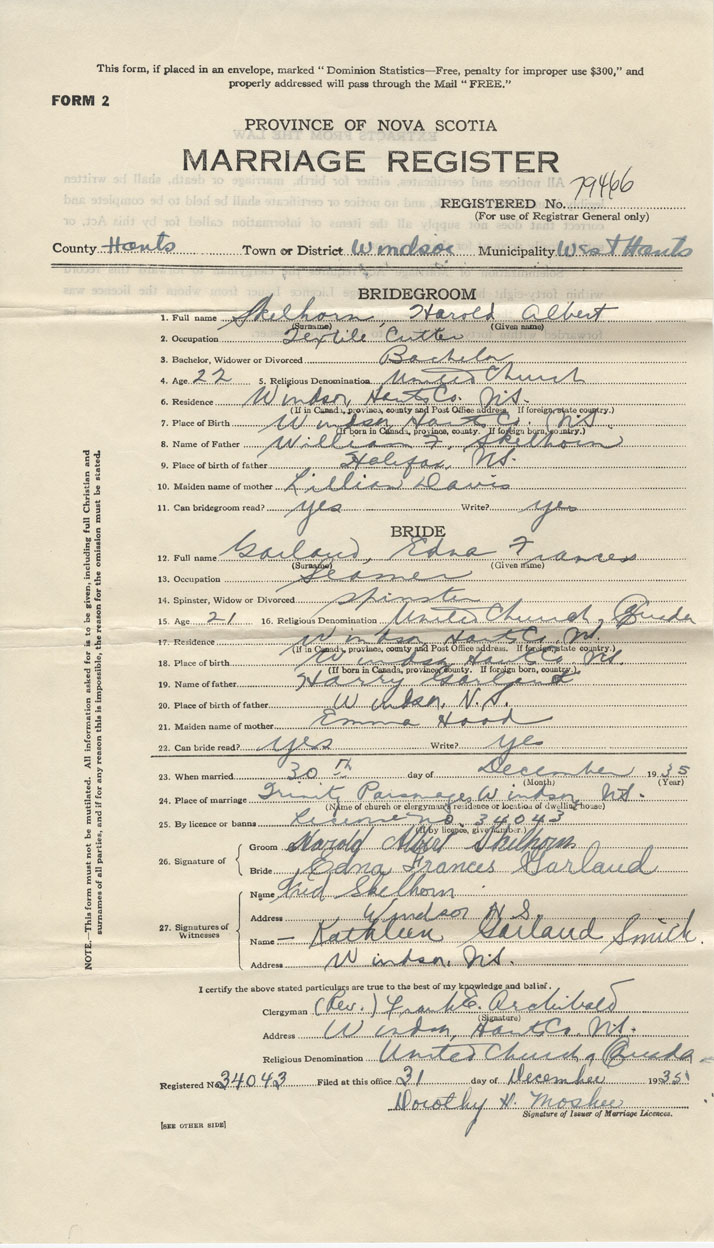 This form, if placed in an envelope, marked "Dominion Statistics—Free, penalty for improper use $300," and
properly addressed will pass through the Mail "FREE."
FORM 2
PROVINCE OF NOVA SCOTIA
MARRIAGE REGISTER
REGISTERED No. 79466
(For use of Registrar General only)
County Hants Town or District Windsor Municipality West Hants
BRIDEGROOM
1. Full name Skelhorn, Harold Albert
(Surname) (Given name)
2. Occupation Textile Cutter
3. Bachelor, Widower or Divorced Bachelor
4. Age 22 5. Religious Denomination United Church
6. Residence Windsor, Hants Co. N.S.
(If in Canada, province, county and Post Office address. If foreign, state country.)
7. Place of Birth Windsor Hants Co. N.S
(If born in Canada, province, county. If foreign born, country.)
8. Name of Father William F. Skelhorn
9. Place of birth of father Halifax, N.S.
10. Maiden name of mother Lillian Davis
11. Can bridegroom read? yes Write? yes
BRIDE
12. Full name Garland, Edna Frances
(Surname) (Given name)
13. Occupation Seamer
14. Spinster, Widow or Divorced spinster
15. Age 21 16. Religious Denomination United Church, Canada
17. Residence Windsor Hants Co. N.S.
(If in Canada, province, county and Post Office address. If foreign, state country.)
18. Place of birth Windsor Hants Co. N.S.
(If born in Canada, province, county. If foreign born, country.)
19. Name of father Harry Garland
20. Place of birth of father Windsor, N.S.
21. Maiden name of mother Emma Hood
22. Can bride read? yes Write? yes
23. When married 30th day of December 1935
(Month) (Year)
24. Place of marriage Trinity Parsonage, Windsor, N.S.
(Name of church or clergyman's residence or location of dwelling house)
25. By licence or banns License no. 34043
(If by licence, give number.)
26. Signature of
Groom Harold Albert Skelhorn
Bride Edna Frances Garland
27. Signatures of Witnesses
Name Fred Skelhorn
Address Windsor N.S.
Name — Kathleen Garland Smith.
Address Windsor, N.S.
I certify the above stated particulars are true to the best of my knowledge and belief.
Clergyman (Rev.) Frank E. Archibald
(Signature)
Address Windsor, Hants Co. N.S.
Religious Denomination United Church of Canada
Registered No. 34043 Filed at this office 31 day of December 1935
Dorothy H. Mosher
Signature of Issuer of Marriage Licences.
[SEE OTHER SIDE]
NOTE.—This form must not be mutilated. All information asked for is to be given, including full Christian and
surnames of all parties, and if for any reason this is impossible, the reason for the omission must be stated.